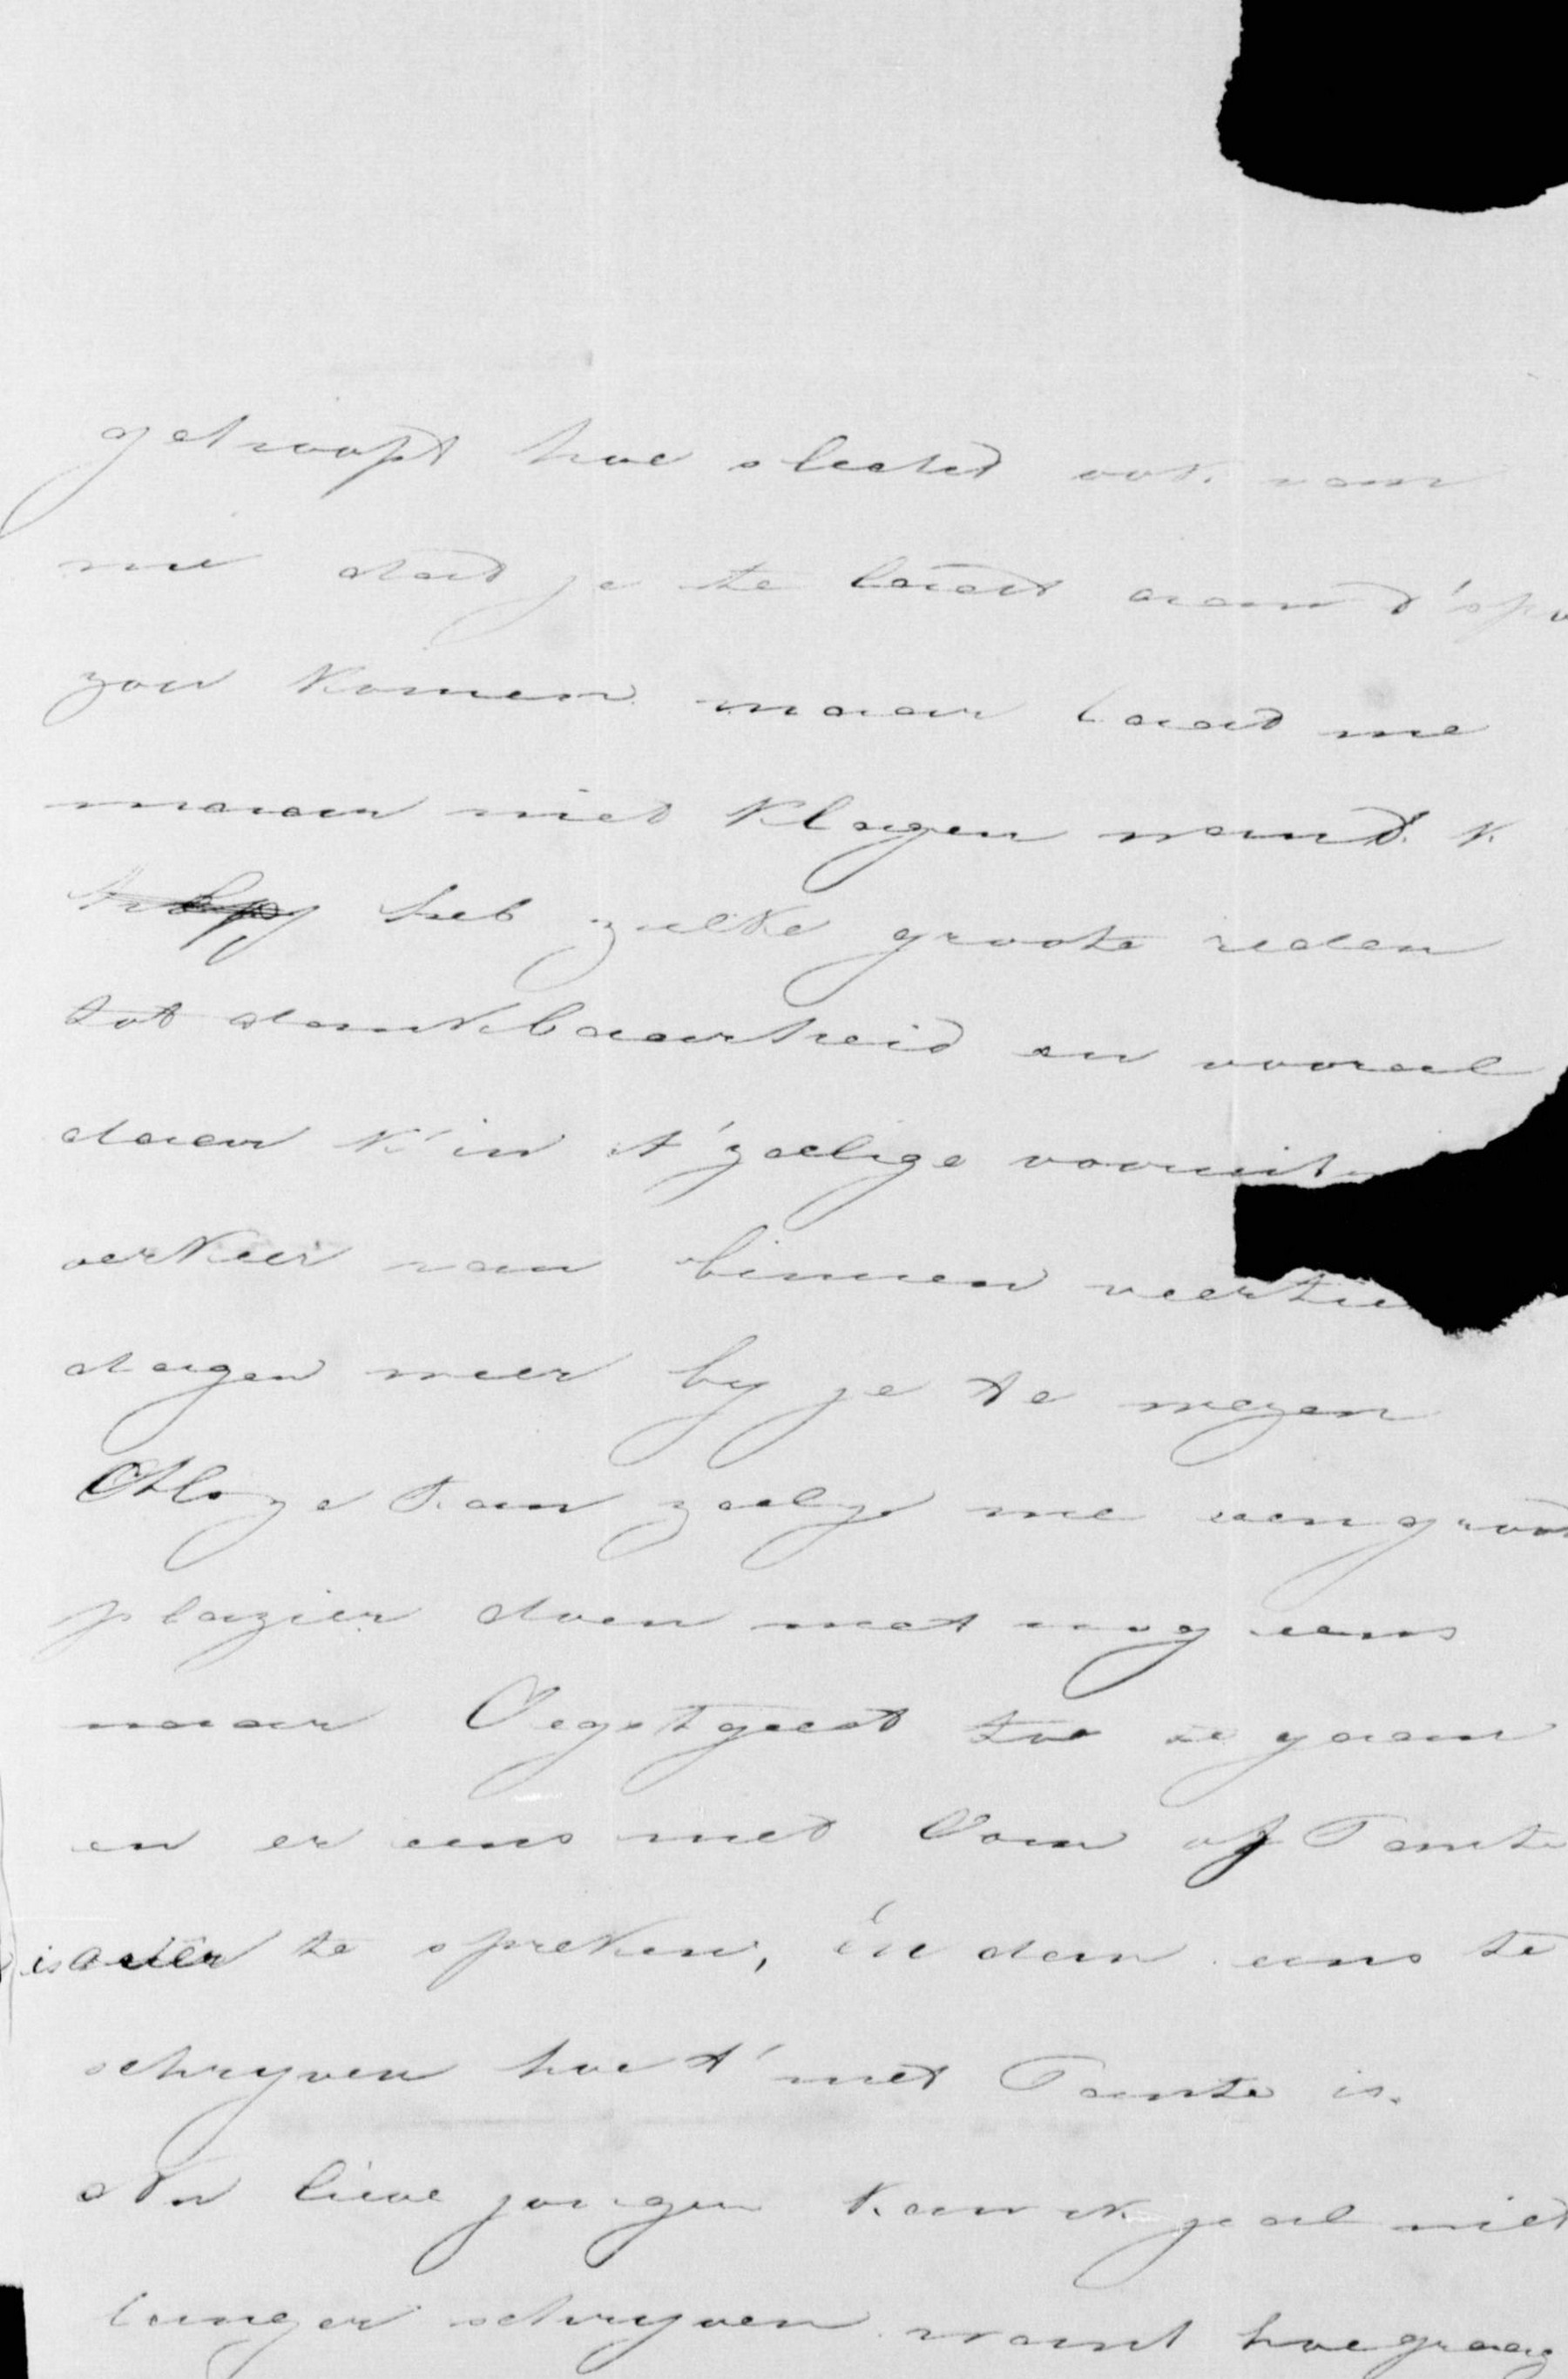 gehoopt hoe slecht ook van
me dat je te laat aan t'spo
zou komen maar laat me
maar niet klagen want k
heb zulke groote reden
tot dankbaarheid en vooral
daar k'in t'zalige vooruit
verkeer van binnen veertie
dagen weer by je te wezen
Alozs kan zalge me een groot
plazier doen met nog eens
naar Oegstgeest toe te gaan
en er eens met Oom of Tante
te spreken, én dan eens te
schryven hoe t' met Tante is.
Nu lieve jongen kan ik je al niet
langer schryven want hoe graag